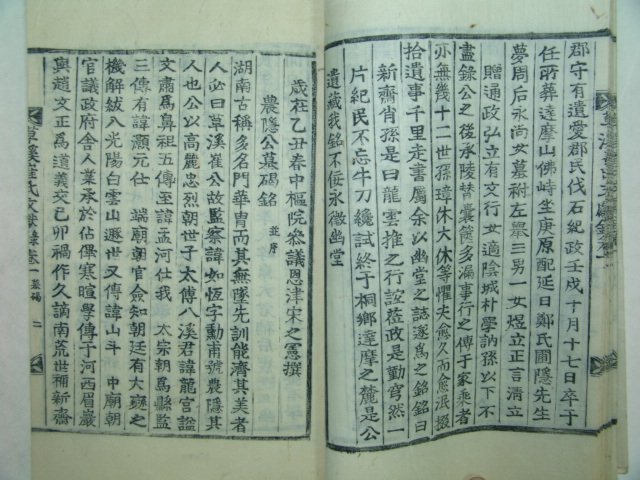 郡守有遺愛郡民伐石紀政壬戌十月十七日卒于
任所葬達摩山佛峙坐庚原配延日鄭氏圃隱先生
夢周后永尚女墓祔左無三男一女煜立正言淸立
贈通政弘立有文行女適陰城朴學訥孫以下不
盡錄公之後承陵替嚢篋多漏事行之傳于家乘者
亦無幾十二世孫璋休大等懼夫愈久而愈泯掇
拾遺事千里走書屬余以幽堂之誌遂爲之銘銘曰
新齋肖孫是曰龍雲推之行誼莅政是勤穹然一
片紀民不忘牛刀纔試終于桐鄕達摩之麓是公
遺藏我銘不侫永徵幽堂
歲在乙丑春中樞院參議恩津宋之憲撰
農隱公墓碣銘 並序
湖南古稱多名門華胄而其無墜先訓能濟其美者
人必曰草溪崔公故監察諱如恆字勳甫號農隱其
人也公以高麗烈朝世子太傅八溪君諱龍宮謚
文肅爲鼻祖五傳至諱孟河仕我 太宗朝爲縣監
三傳有諱顥元仕 端廟朝官僉知朝廷有大變之
機解紱入光陽白雲山遯世又傳諱山斗 中廟朝
官議政府舍人業承於佔畢寒暄學傳于河西眉巖
與趙文正爲道義交己卯禍作久謫南荒世稱新齋
草溪崔氏文獻錄 卷一 墓碣 二